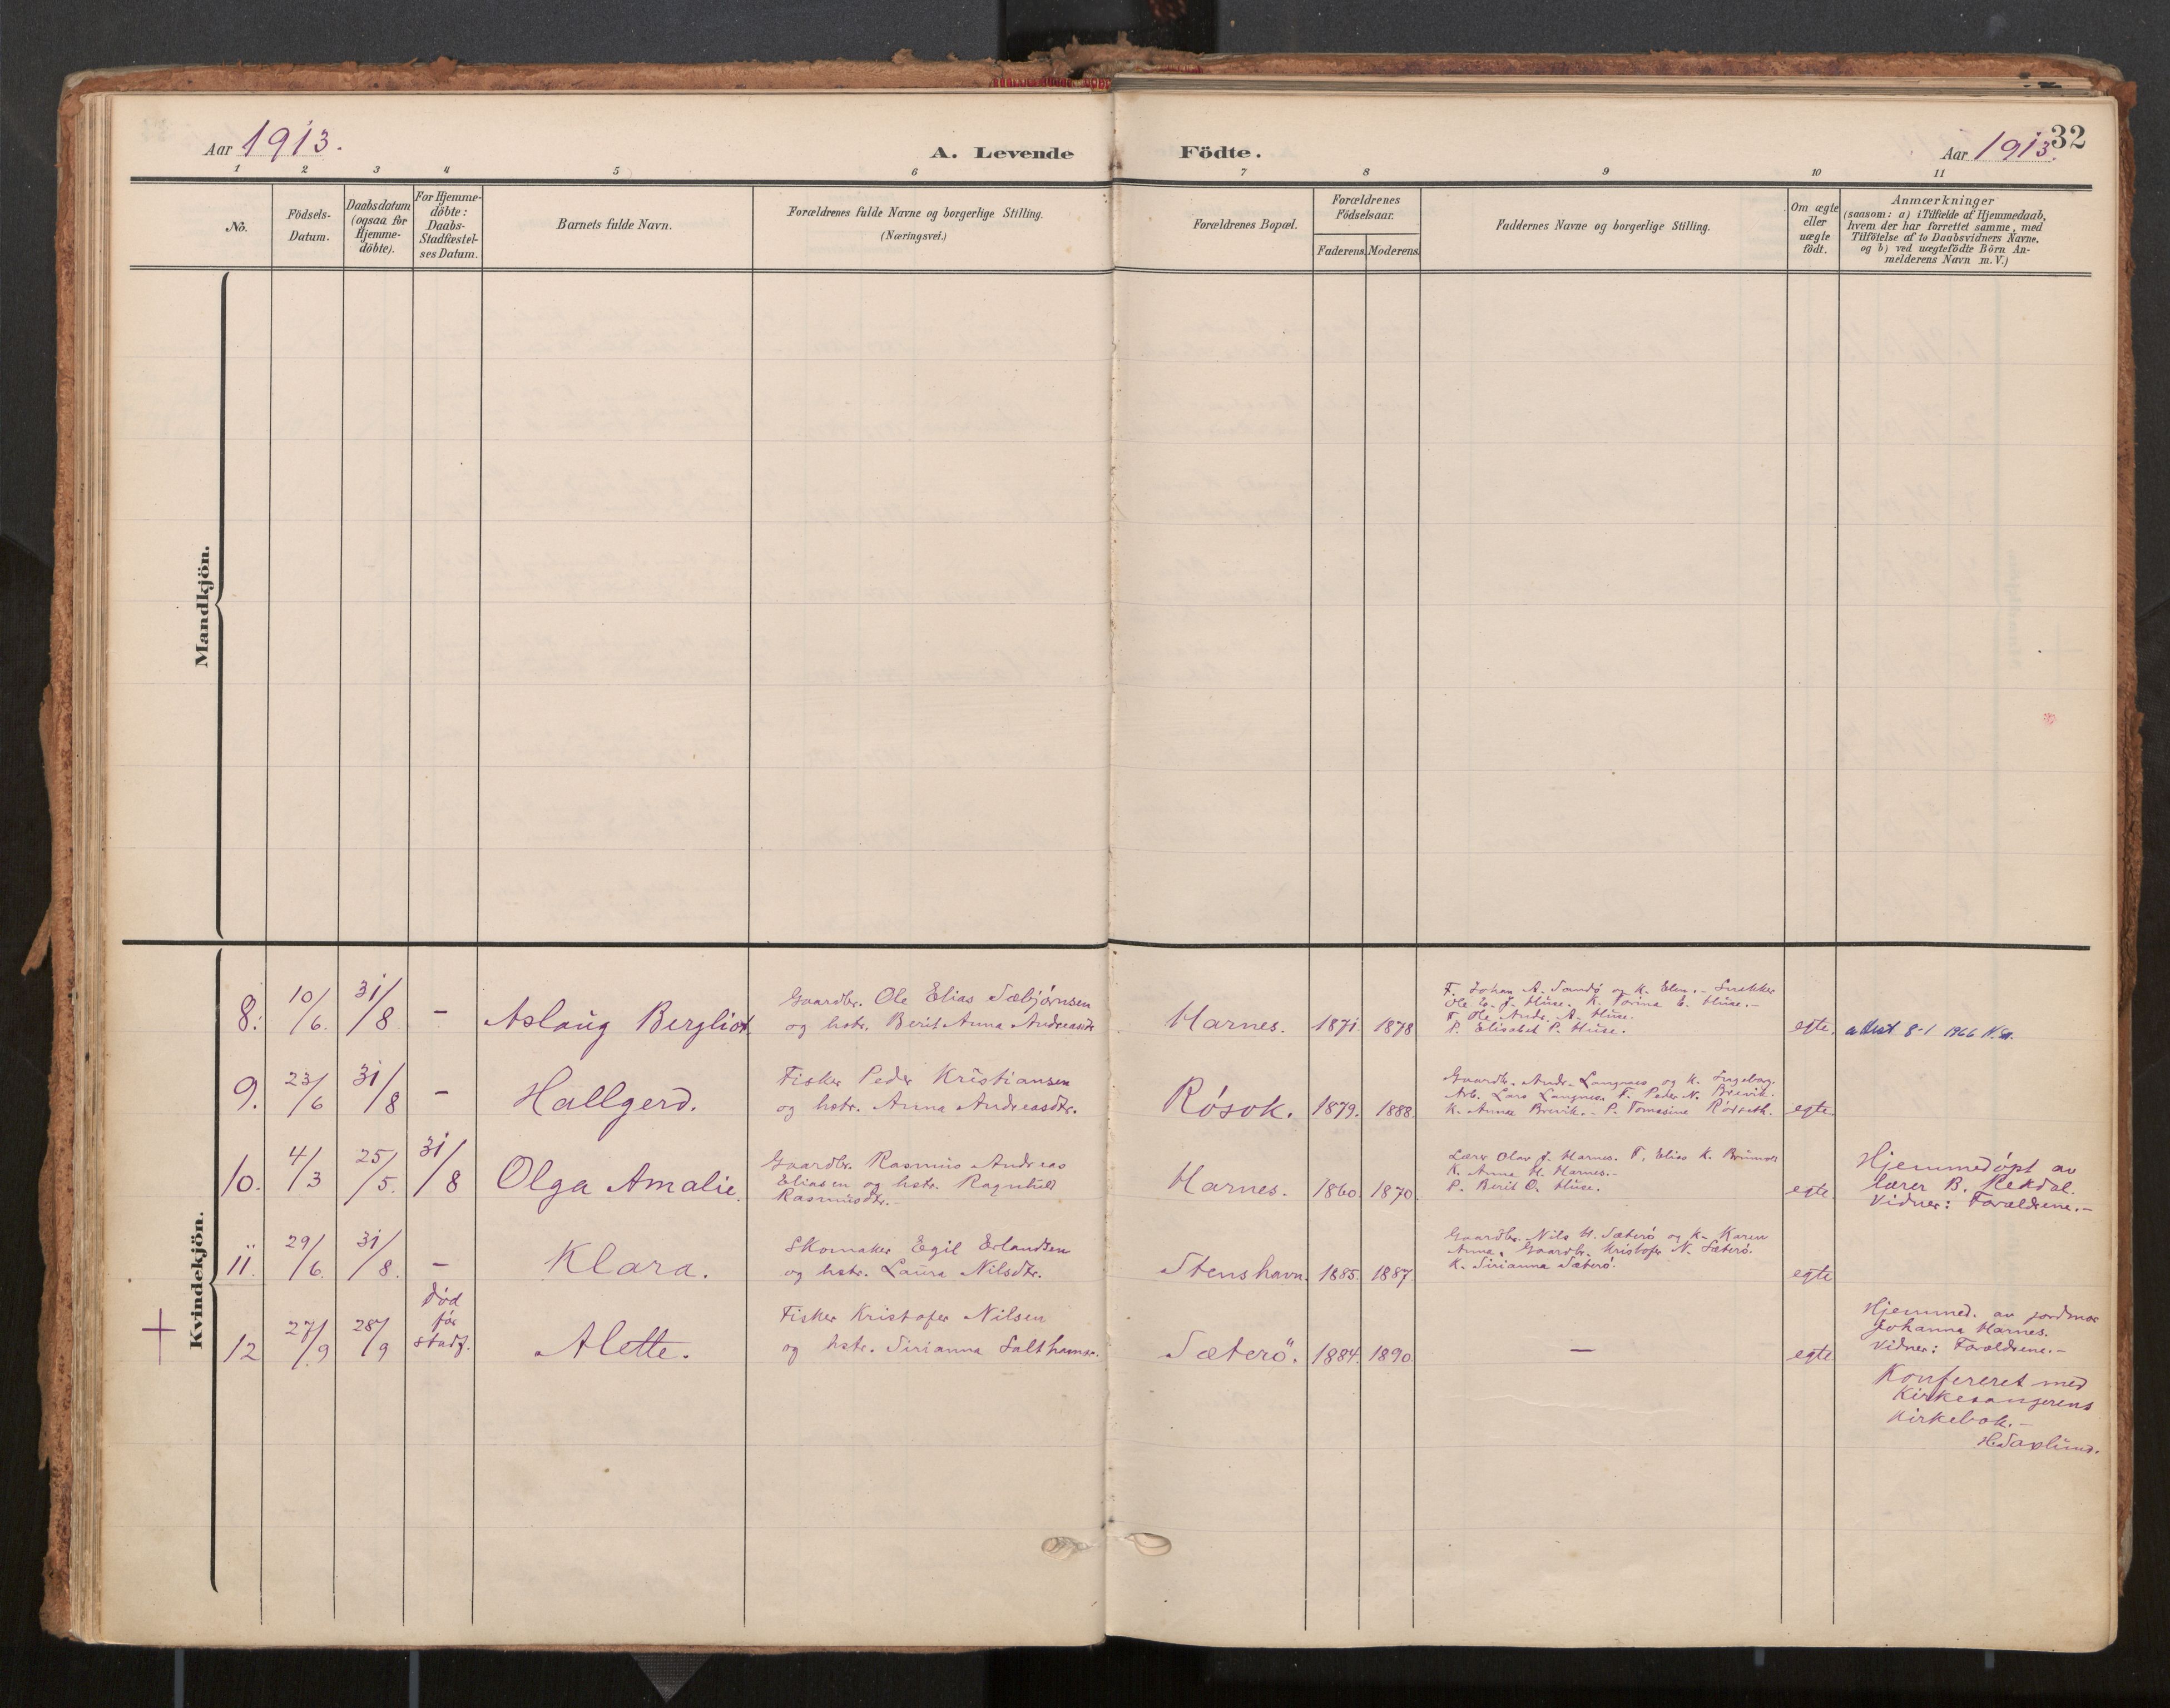 Aar 1913.
A. Levende Födte.
Aar 1913.
32
1 2 3 4 5 6 7 8 9 10 11
No.
Födsels-
Datum.
Daabsdatum
(ogsaa for
Hjemme-
döbte).
For Hjemme-
döbte:
Daabs-
Stadfæstel-
ses Datum.
Barnets fulde Navn.
Forældrenes fulde Navne og borgerlige Stilling.
(Næringsvei.)
Forældrenes Bopæl.
Forældrenes
Födselsaar.
Faderens. Moderens.
Faddernes Navne og borgerlige Stilling.
Om ægte
eller
uægte
födt.
Anmærkninger
(saasom: a) i Tilfælde af Hjemmedaab,
hvem der har forrettet samme, med
Tilföielse af to Daabsvidners Navne.
og b) ved uægtefödte Börn An-
melderens Navn m. V.)
Mandkjön.
Kvindekjön.
8.
10/6.
31/8
-
Aslaug Bergliot.
Gaardbr. Ole Elias Sæbjørnsen
og hstr. Berit Anna Andreasdtr
Harnes.
1871.
1878
F. Johan A. Sandø og K. Elen. - Snekker
Ole E. J. Huse. K. Torina E. Huse. -
F. Ole Andr. A. Huse.
P. Elisabet P. Huse.
egte.
attest 8-1 1966
9.
23/6
31/8
-
Hallgerd.
Fisker Peder Kristiansen
og hstr. Anna Andreasdtr.
Røsok.
1879.
1888.
Gaardbr. Andr. Langnes og K. Ingebog.
Arb. Lars Langnes. F. Peder N. Brevik.
K. Anna Brevik. - P. Tomasine Rørseth.
egte
10.
4/3
25/5.
31/8
Olga Amalie.
Gaardbr. Rasmus Andreas
Eliasen og hstr. Ragnhild
Rasmusdtr. -
Harnes.
1860.
1870
Lærer Olav J. Harnes. F. Elias K.
K. Anna H. Harnes. -
P. Berit O. Huse.
egte
Hjemmedøpt av
lærer B. Rekdal.
Vidner: Forældrene. -
11.
29/6.
31/8.
-
Klara.
Skomaker Egil Erlandsen
og hstr. Laura Nilsdtr.
Stenshavn.
1885.
1887
Gaardbr. Nils H. Sæterø og K. Karen
Anna. Gaardbr. Kristofer N. Sæterø.
K. Sirianna Sæterø.
egte
+
12
27/9
28/9
død
før
stadf.
Alette.
Fisker Kristofer Nilsen
og hstr. Sirianna Salthamr.
Sæterö.
1884.
1890.
-
egte
Hjemmed. av jordmor
Johanna Harnes.
Vidner: Forældrene. -
Konfereret med
Kirkesangerens
Kirkebok. -